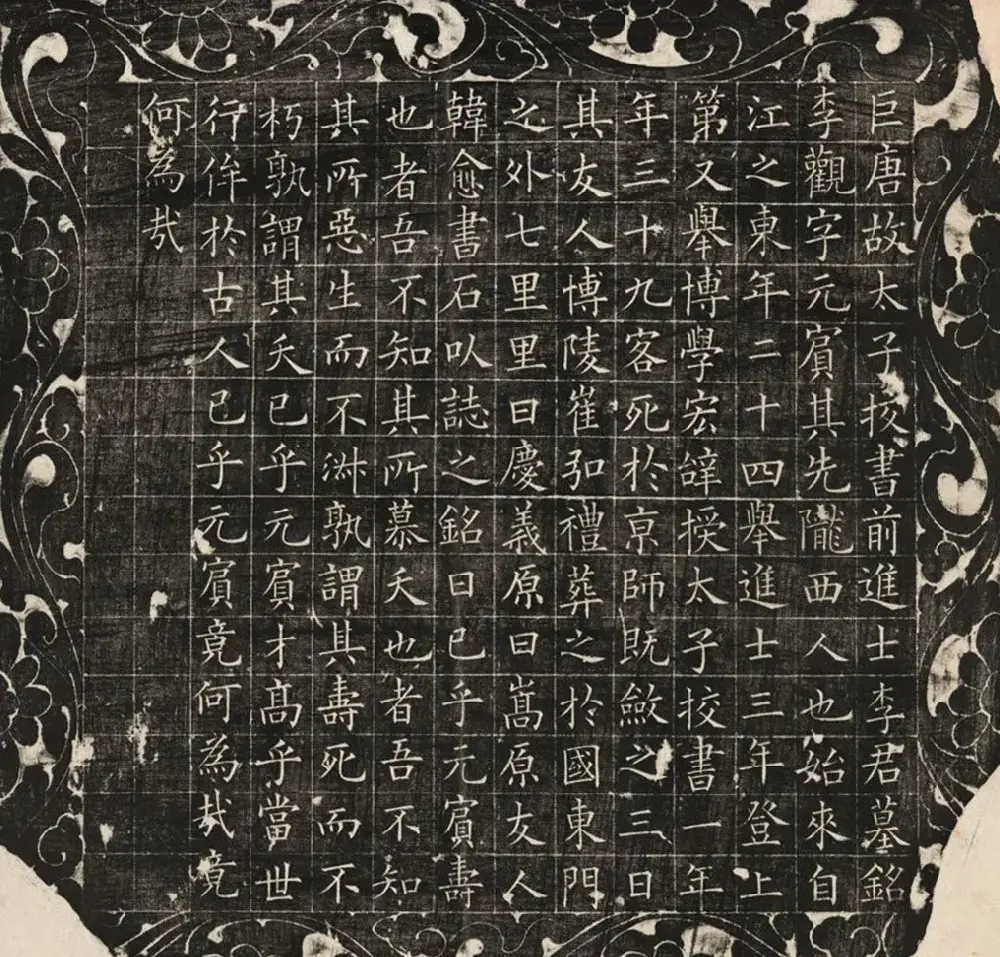 巨唐故太子挍書前進士李君墓銘
李觀字元賔其先隴西人也始來自
江之東年二十四舉進士三年登上
第又舉博學宏辝授太子挍書一年
年三十九客死於亰師既斂之三日
其友人博陵崔弘禮葬之於國東門
之外七里里曰慶義原曰嵩原友人
韓愈書石以誌之銘曰已乎元賔壽
也者吾不知其所慕夭也者吾不知
其所惡生而不淑孰謂其壽死而不
朽孰謂其夭已乎元賔才髙乎當世
行侔於古人已乎元賔竟何為㢤竟
何為㢤